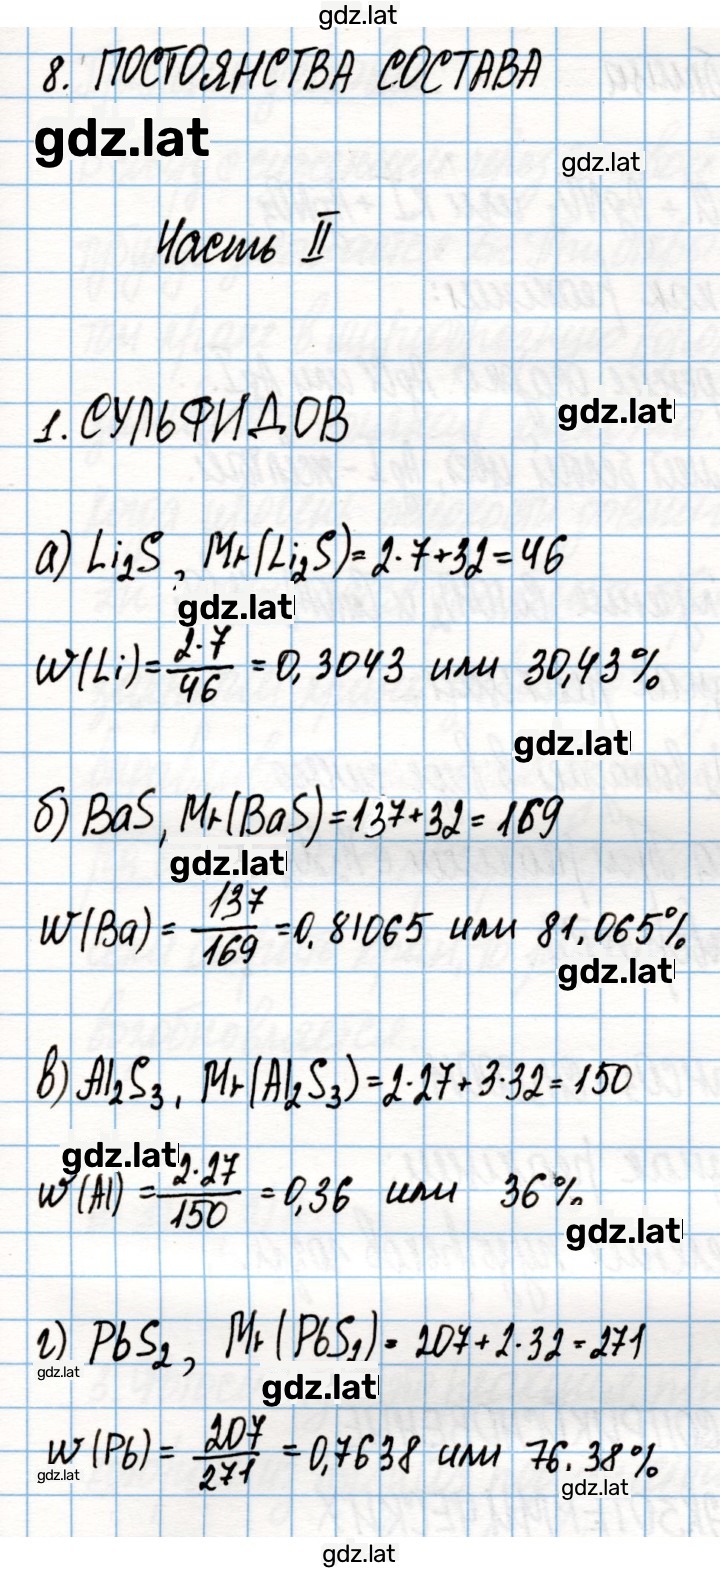 gdz.lat
8. ПОСТОЯНСТВА СОСТАВА
gdz.lat
gdz.lat
Часть II
1. СУЛЬФИДОВ
gdz.lat
а) Li₂S, Mr(Li₂S)=2·7+32=46
gdz.lat
w(Li)=2·7/46=0,3043 или 30,43%
gdz.lat
б) BaS, Mr(BaS)=137+32=169
gdz.lat
w(Ba)=137/169=0,81065 или 81,065%
gdz.lat
в) Al₂S₃, Mr(Al₂S₃)=2·27+3·32=150
gdz.lat
w(Al)=2·27/150=0,36 или 36%
gdz.lat
г) PbS₂, Mr(PbS₂)=207+2·32=271
gdz.lat
gdz.lat
w(Pb)=207/271=0,7638 или 76,38%
gdz.lat
gdz.lat
gdz.lat